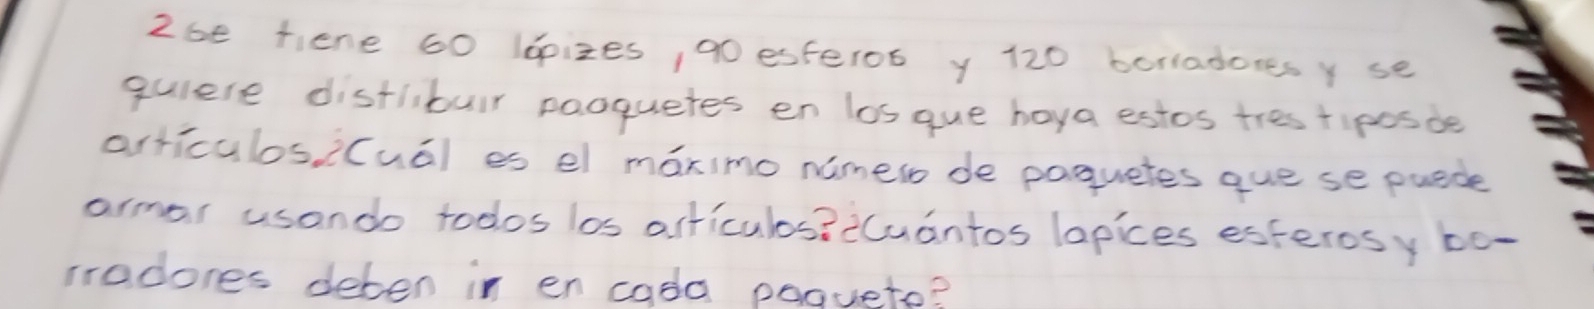 2 se tiene 60 lápizes, 90 esferos y 120 borradores y se
quiere distribuir paoquetes en los que haya estos tres tipos de
artículos. ¿Cuál es el máximo número de paquetes que se puede
armar usando todos los artículos? ¿Cuántos lapíces esferos y bo-
rradores deben ir en cada paquete?